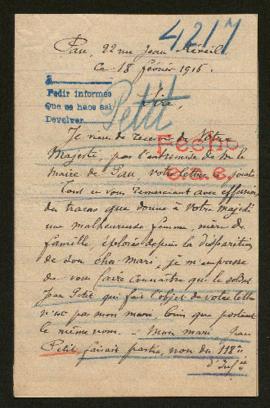 4217
Pau, 22 rue Jean Réveil
Ce 18 février 1916.
A
Pedir informes
Que se hace sal
Devolver
Petit
Sire,
Je viens de recevoir de Votre
Majesté, par l'entremise de Mr le
Maire de Pau, votre lettre
Tout en vous remerciant avec effusion
du tracas que donne à Votre Majesté
une malheureuse femme, mère de
famille, éplorée depuis la disparition
de son cher mari, je m'empresse
de vous faire connaître que le soldat
Jean Petit qui fait l'objet de votre lettre
n'est pas mon mari, bien que portant
le même nom. - Mon mari Jean
Petit, faisait partie, non du 118e
d'Infie